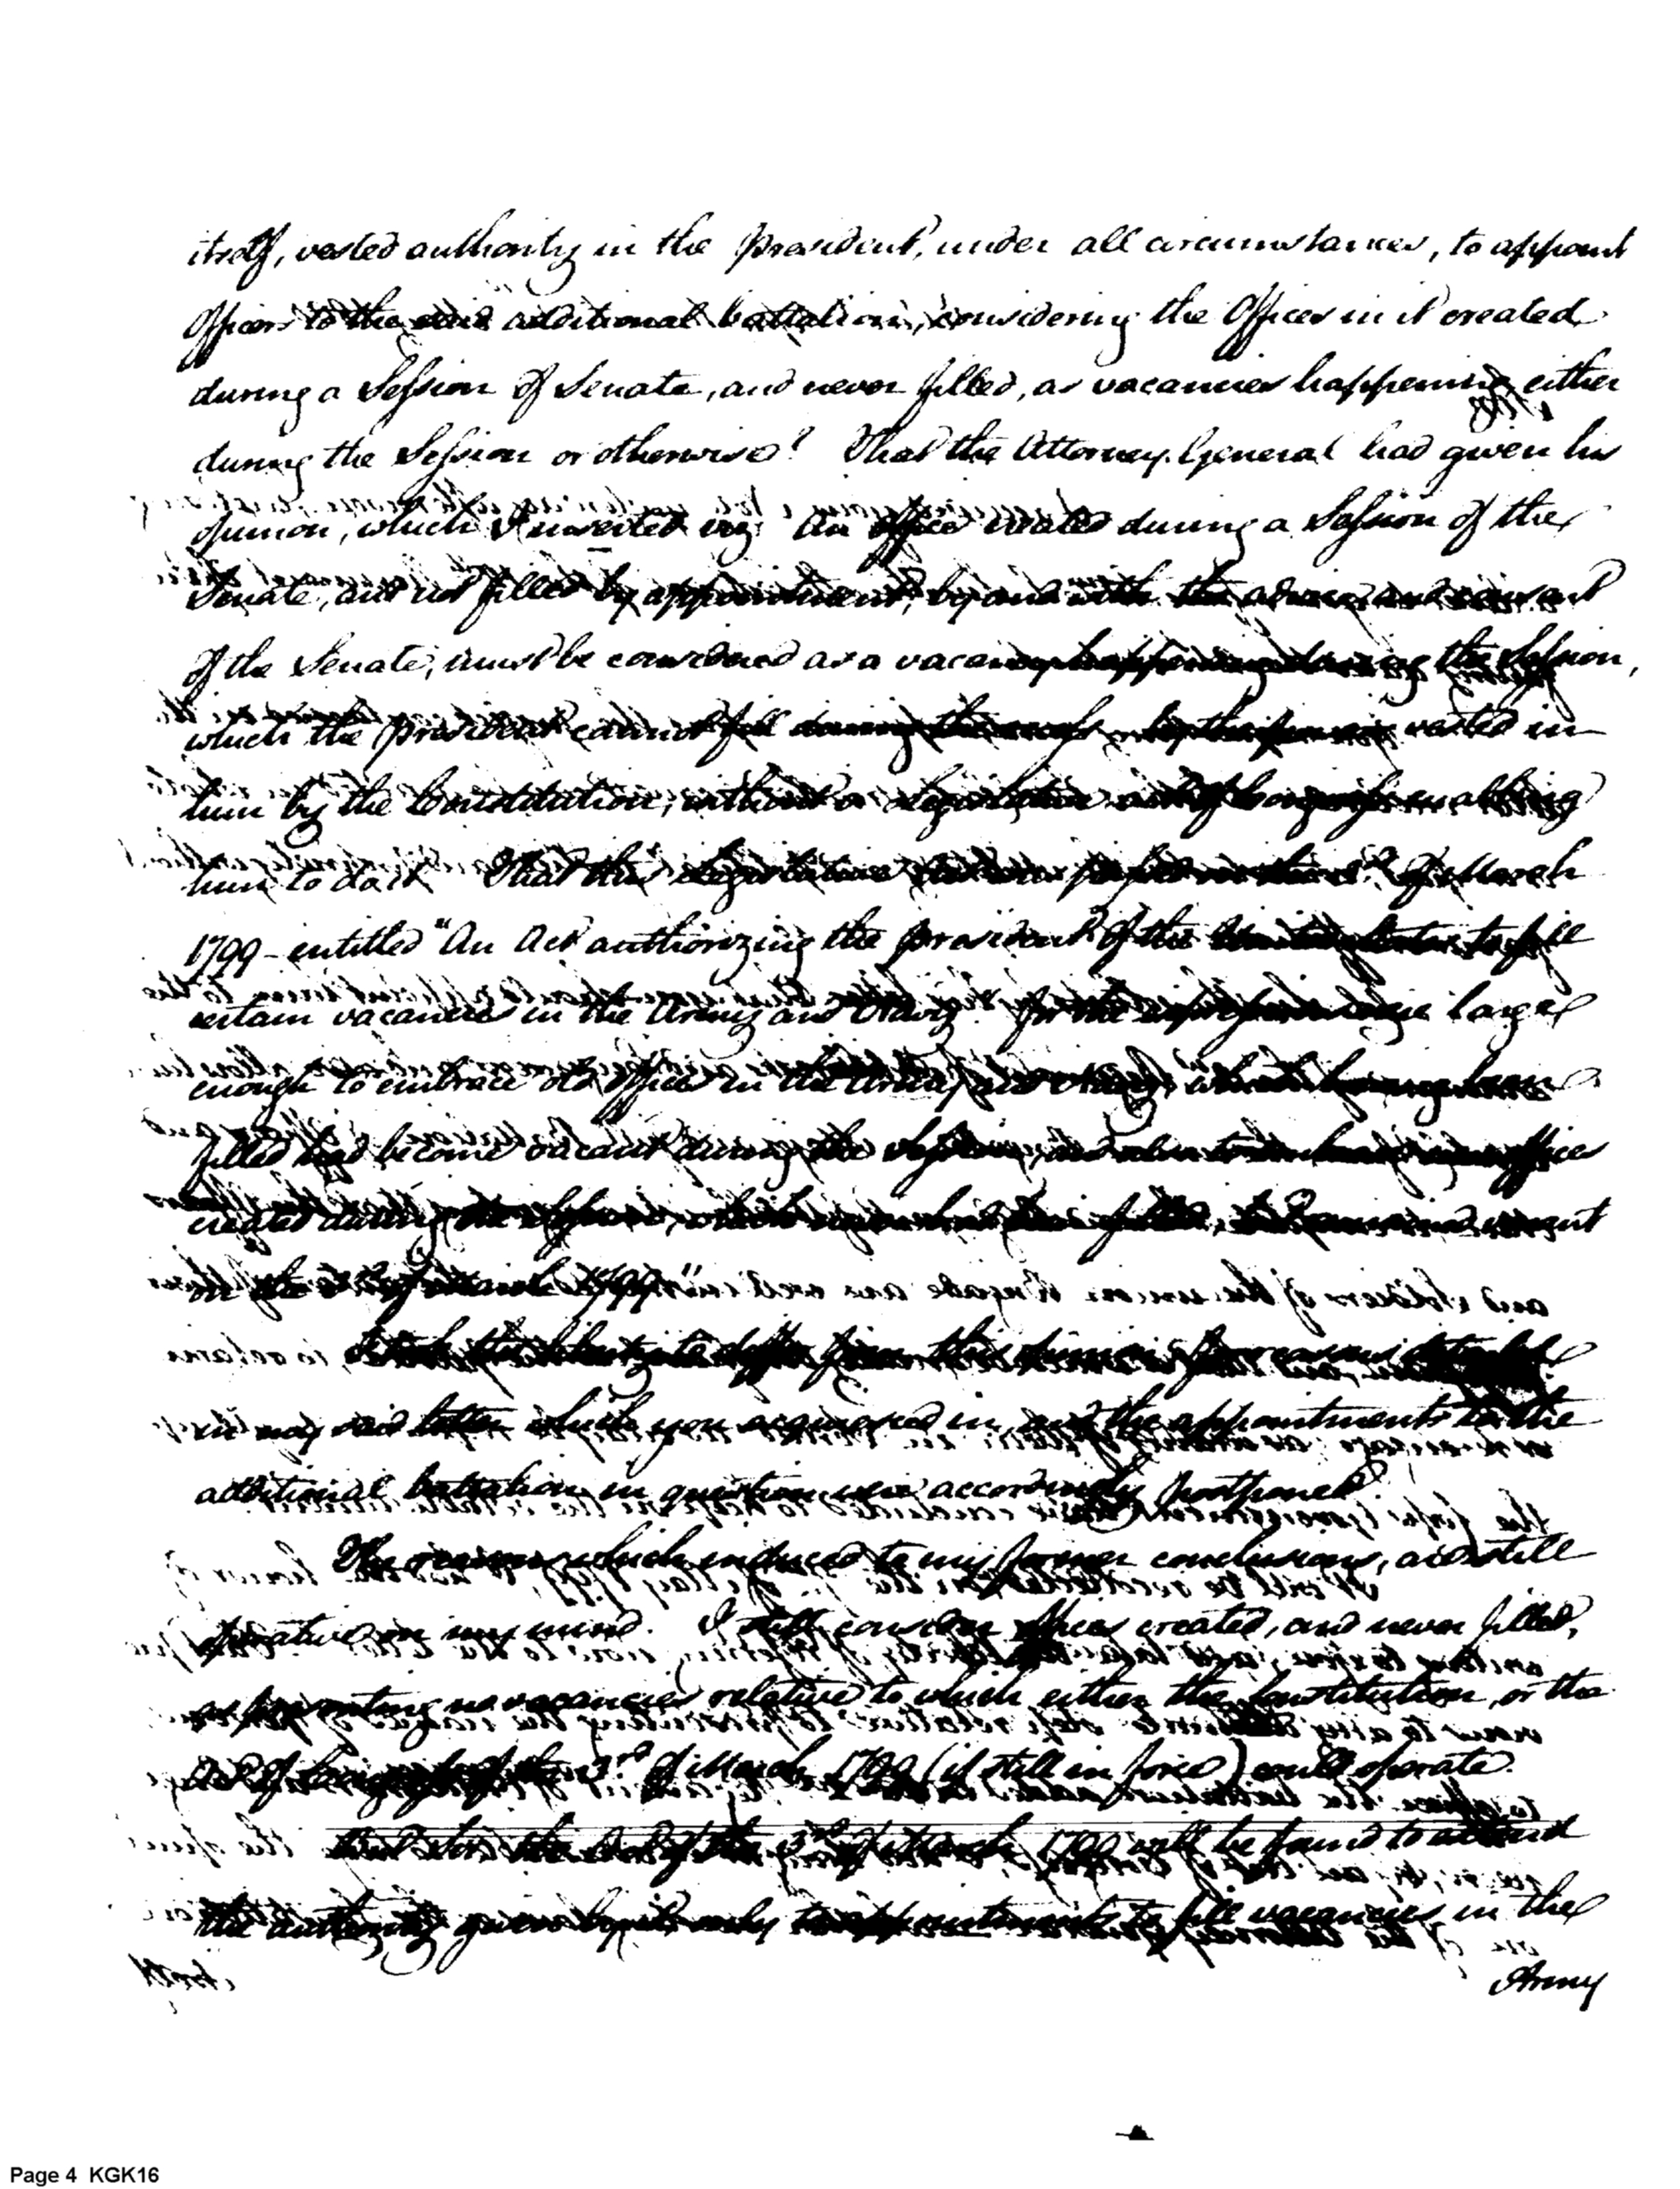 itself, vested authority in the President, under all circumstances, to appoint
Officers to the said additional battalion, considering the Offices in it created
during a Session of Senate, and never filled, as vacancies happening either
during the Session or otherwise? That the Attorney General had given his
opinion, which I inserted viz: An office created during a Session of the
Senate, and not filled by appointment, by and with the advice and consent
of the Senate, must be considered as a vacancy happening during the Session,
which the President cannot fill during the recess, by the power vested in
him by the Constitution, without a legislative act of Congress enabling
him to do it. That the legislative of March
1799 entitled "An Act authorizing the President of the United States to fill
certain vacancies in the Army and Navy." large
enough to embrace old offices in the Army and Navy, which having been
filled had become vacant during the Session, and also to embrace offices
created during the Session, which never had been filled, vacant
on the of March 1799."
I took the liberty to differ from this opinion for reasons detailed
in my said letter which you acquiesced in, and the appointments to the
additional battalion in question were accordingly postponed.
The reasons which induced to my former conclusions, are still
operative on my mind. I still consider offices created, and never filled,
as presenting no vacancies relative to which either the Constitution, or the
Act of Congress of the 3rd of March 1799 (if still in force) could operate.
the Act of the 3rd of March 1799 will be found to extend
the authority given by it only to appointments to fill vacancies in the
Army
Page 4 KGK16